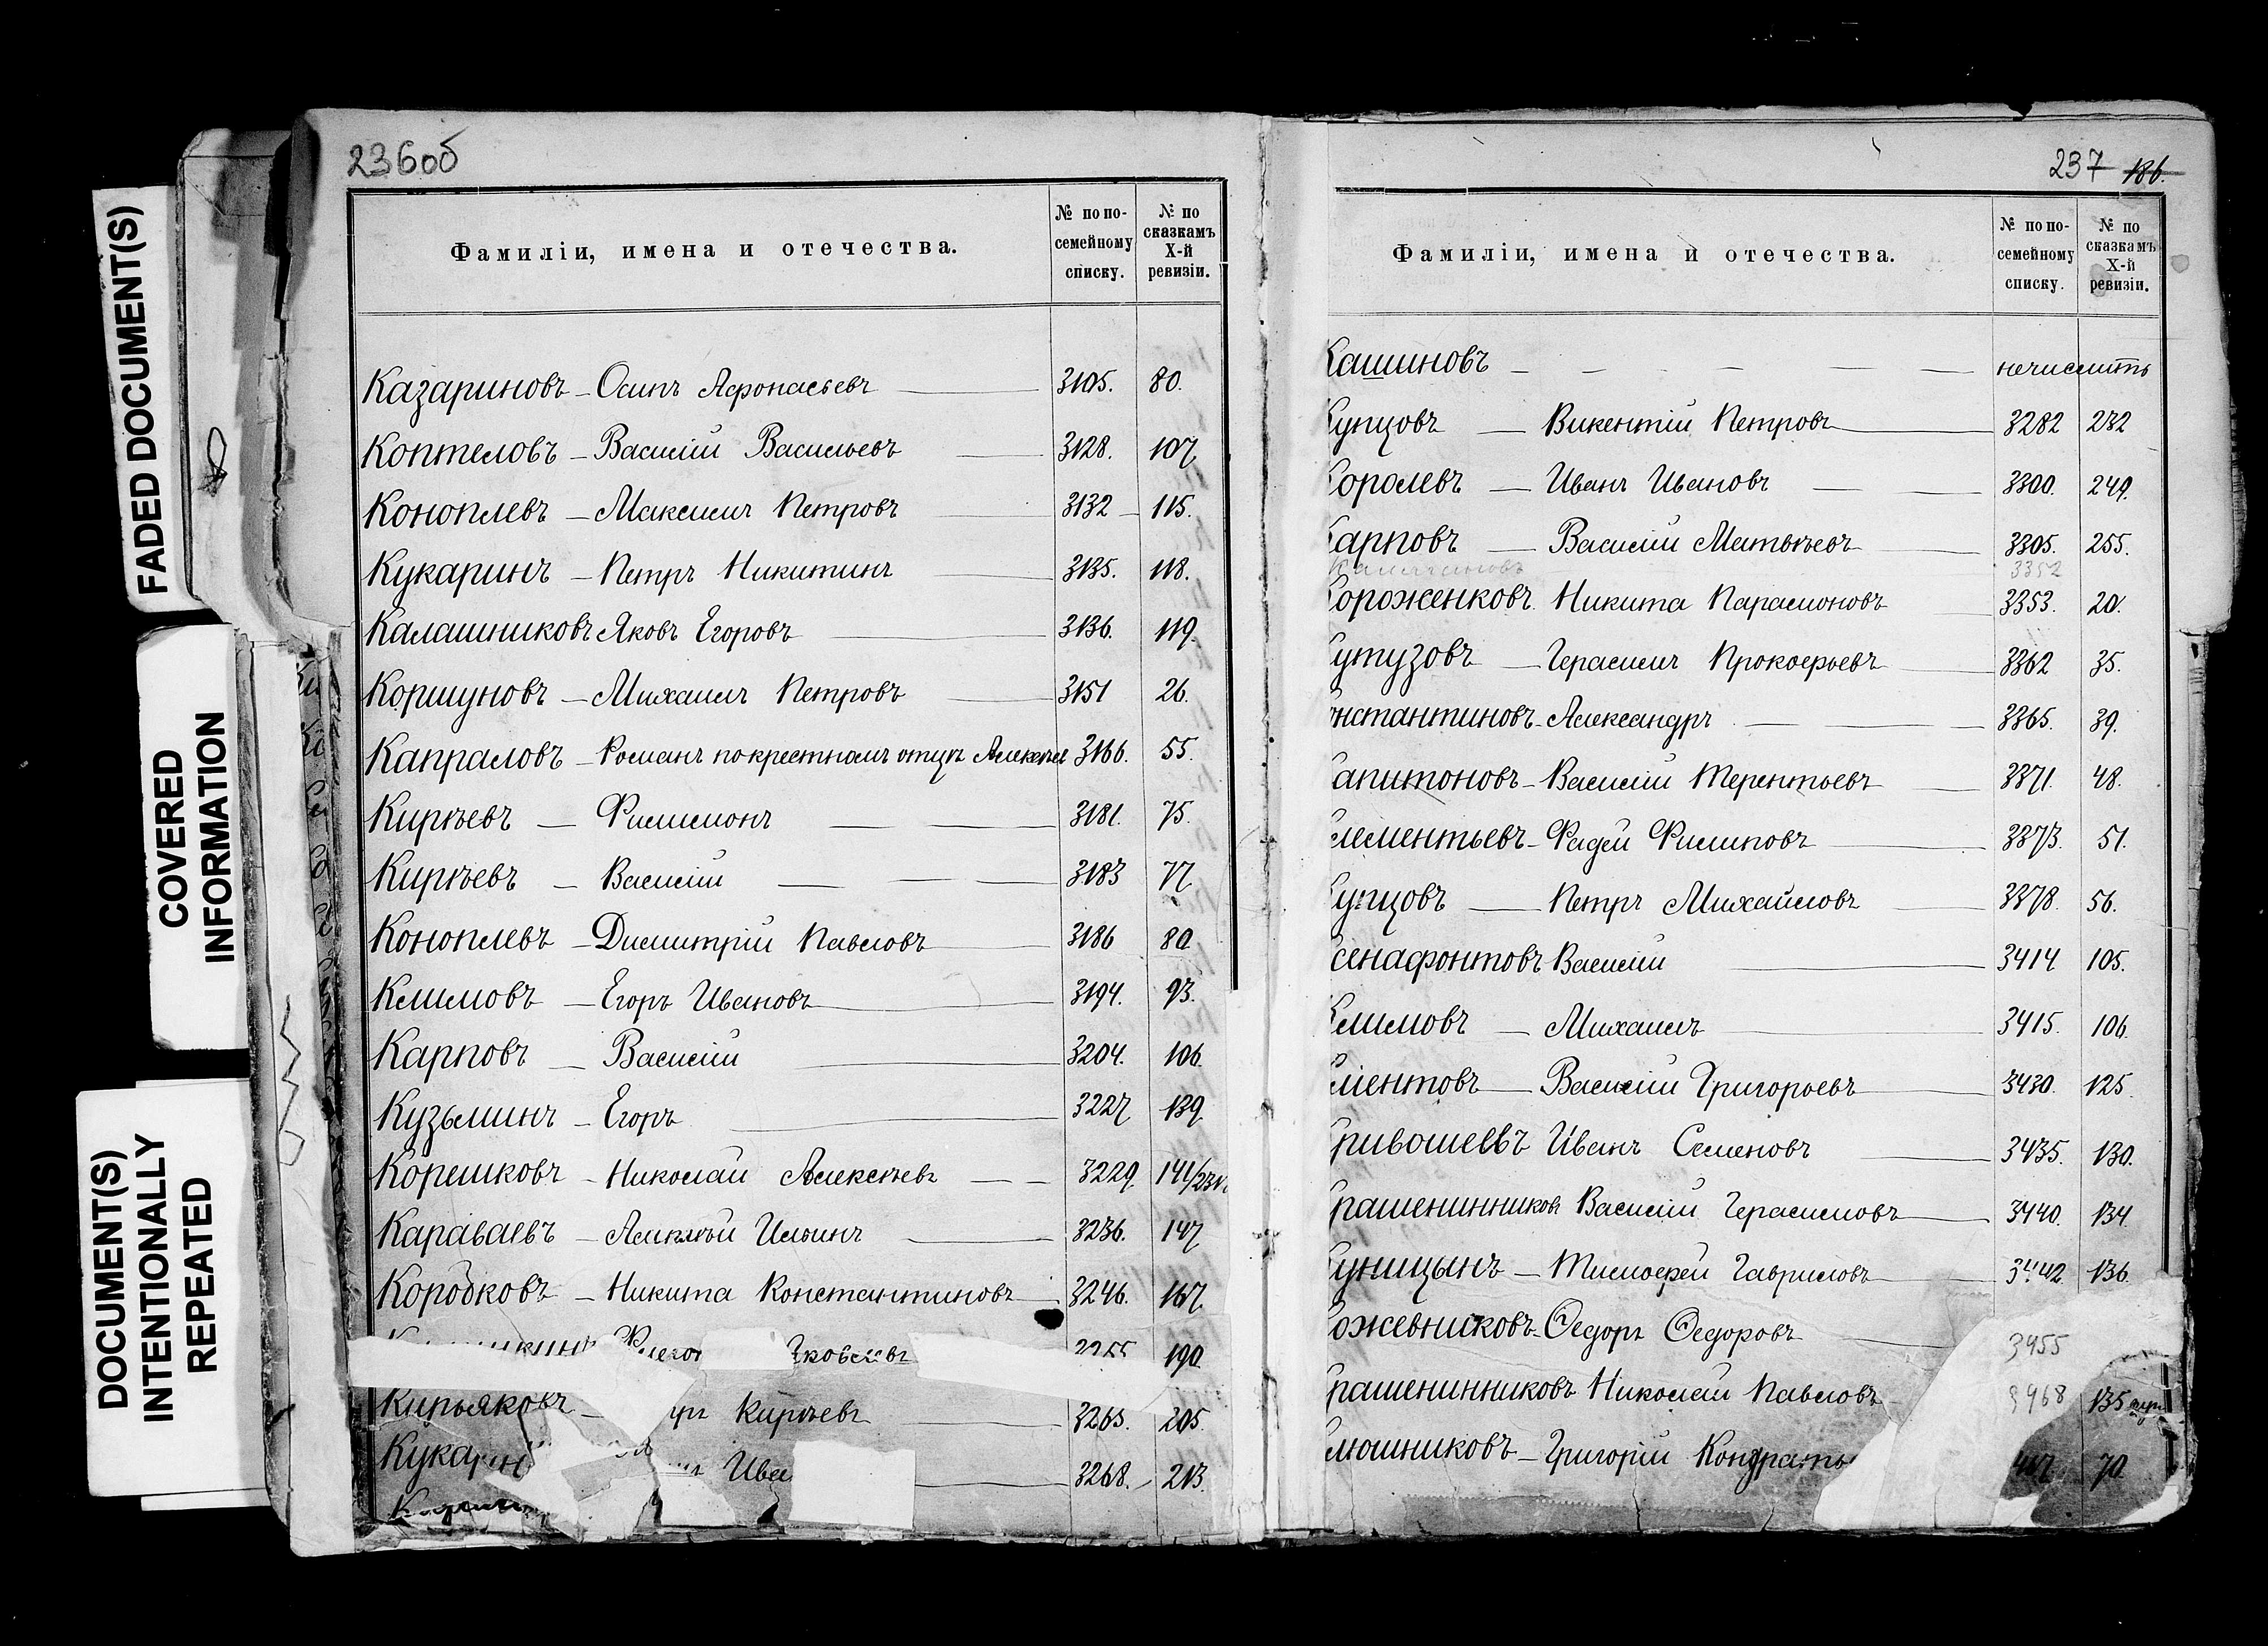 FADED DOCUMENT(S)
COVERED
INFORMATION
DOCUMENT(S)
INTENTIONALLY
REPEATED
236об
Фамиліи, имена и отечества.
№ по по-
семейному
списку.
№ по
сказкамъ
X-й
ревизіи.
Казариновъ - Осипъ Афонасьевъ 3105. 80.
Коптеловъ - Василій Васильевъ 3128. 107
Коноплевъ - Максимъ Петровъ 3132 - 115.
Кукаринъ - Петръ Никитинъ 3135. 118.
Калашниковъ Яковъ Егоровъ 3136. 119.
Коршуновъ - Михаилъ Петровъ 3151 26.
Капраловъ - Романъ по крестномъ отцѣ Алексѣев 3166. 55.
Кирѣевъ - Филимонъ 3181. 75.
Кирѣевъ - Василій 3183 77
Коноплевъ - Димитрій Павловъ 3186 80
Климовъ - Егоръ Ивановъ 3194. 93.
Карповъ - Василій 3204. 106.
Кузьминъ - Егоръ 3227 139.
Корешковъ - Николай Алексѣевъ 3229. 141/231
Караваевъ - Алексѣй Ильинъ 3236. 147
Коробковъ - Никита Константиновъ 3246. 167.
190.
Кирьяковъ - Кирѣевъ 3265. 205.
Кукарин Ива 3268. - 213.
237 186.
Фамиліи, имена и отечества.
№ по по-
семейному
списку.
№ по
сказкамъ
X-й
ревизіи.
Кашиновъ - - - - - нечислитъ
Купцовъ - Викентій Петровъ 3282 232
Королевъ - Иванъ Ивановъ 3300. 249.
Карповъ - Василій Матвѣевъ 3305. 255.
3352
Короженковъ Никита Парамоновъ 3353. 20.
Кутузовъ - Герасимъ Прокофьевъ 3362 35.
онстантиновъ - Александръ 3365. 39.
Капитоновъ - Василій Терентьевъ 3371. 48.
лементьевъ - Фадей Филиповъ 3373. 51.
Купцовъ - Петръ Михайловъ 3378. 56.
сенафонтовъ Василій 3414 105.
Климовъ - Михаилъ 3415. 106.
лментовъ - Василій Григорьевъ 3430. 125.
Кривошеевъ Иванъ Семеновъ 3435. 130.
Крашенинниковъ Василій Герасимовъ 3440. 134
Куницынъ - Тимофей Гавриловъ 3442 136.
Кожевниковъ - Ѳедоръ Ѳедоровъ 3455
Крашенинниковъ Николай Павловъ 3468 135
Клюшниковъ - Григорій Кондрать 70